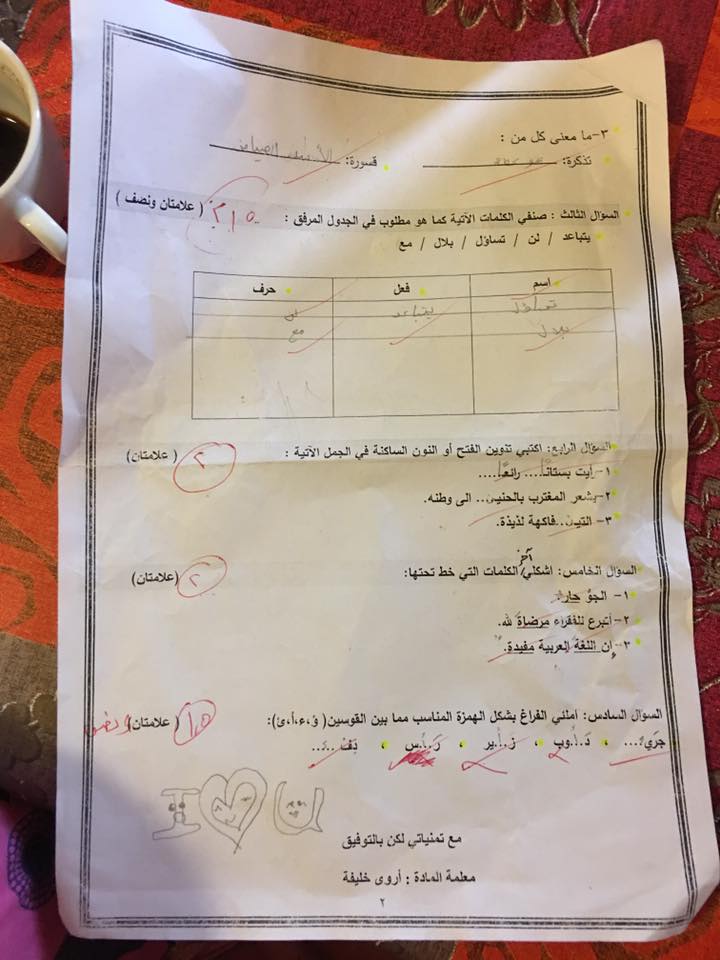 ٣-ما معنى كل من :
تذكرة: قسورة: الصياد
السؤال الثالث : صنفي الكلمات الآتية كما هو مطلوب في الجدول المرفق : ( علامتان ونصف )
يتباعد / لن / تساؤل / بلال / مع
اسم فعل حرف
تساؤل يتباعد لن
بلال مع
السؤال الرابع: اكتبي تنوين الفتح أو النون الساكنة في الجمل الآتية : ( علامتان) ٢
١-رأيت بستانًا.... رائعًا....
٢-يشعر المغترب بالحنين.. الى وطنه.
٣-التين..فاكهة لذيذة.
السؤال الخامس: اشكلي آخر الكلمات التي خط تحتها: (علامتان) ٢
١- الجوُّ حارٌ.
٢-أتبرع للفقراء مرضاة لله.
٣-إن اللغة العربية مفيدة.
السؤال السادس: أملئي الفراغ بشكل الهمزة المناسب مما بين القوسين( ؤ،ء،أ،ئ): ( علامتان) ونصف ١,٥
جَريء... ، دَ..أ..وب ، ز..أ..ير ، رَ..أ..س ، دِفْ..ئ..
I U
مع تمنياتي لكن بالتوفيق
معلمة المادة : أروى خليفة
٢